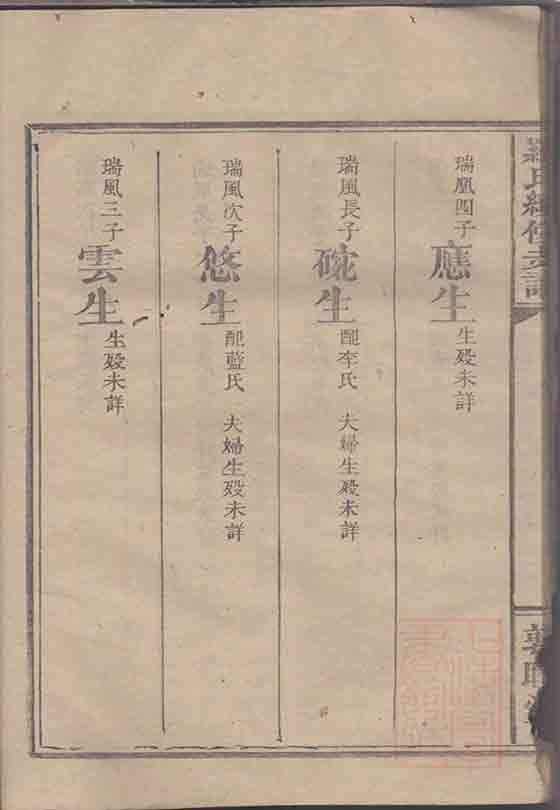 羅氏續修支譜
瑞鳳四子 應生 生歿未詳
瑞風長子 硔生 配李氏 夫婦生歿未詳
瑞風次子 悠生 配藍氏 夫婦生歿未詳
瑞風三子 雲生 生歿未詳